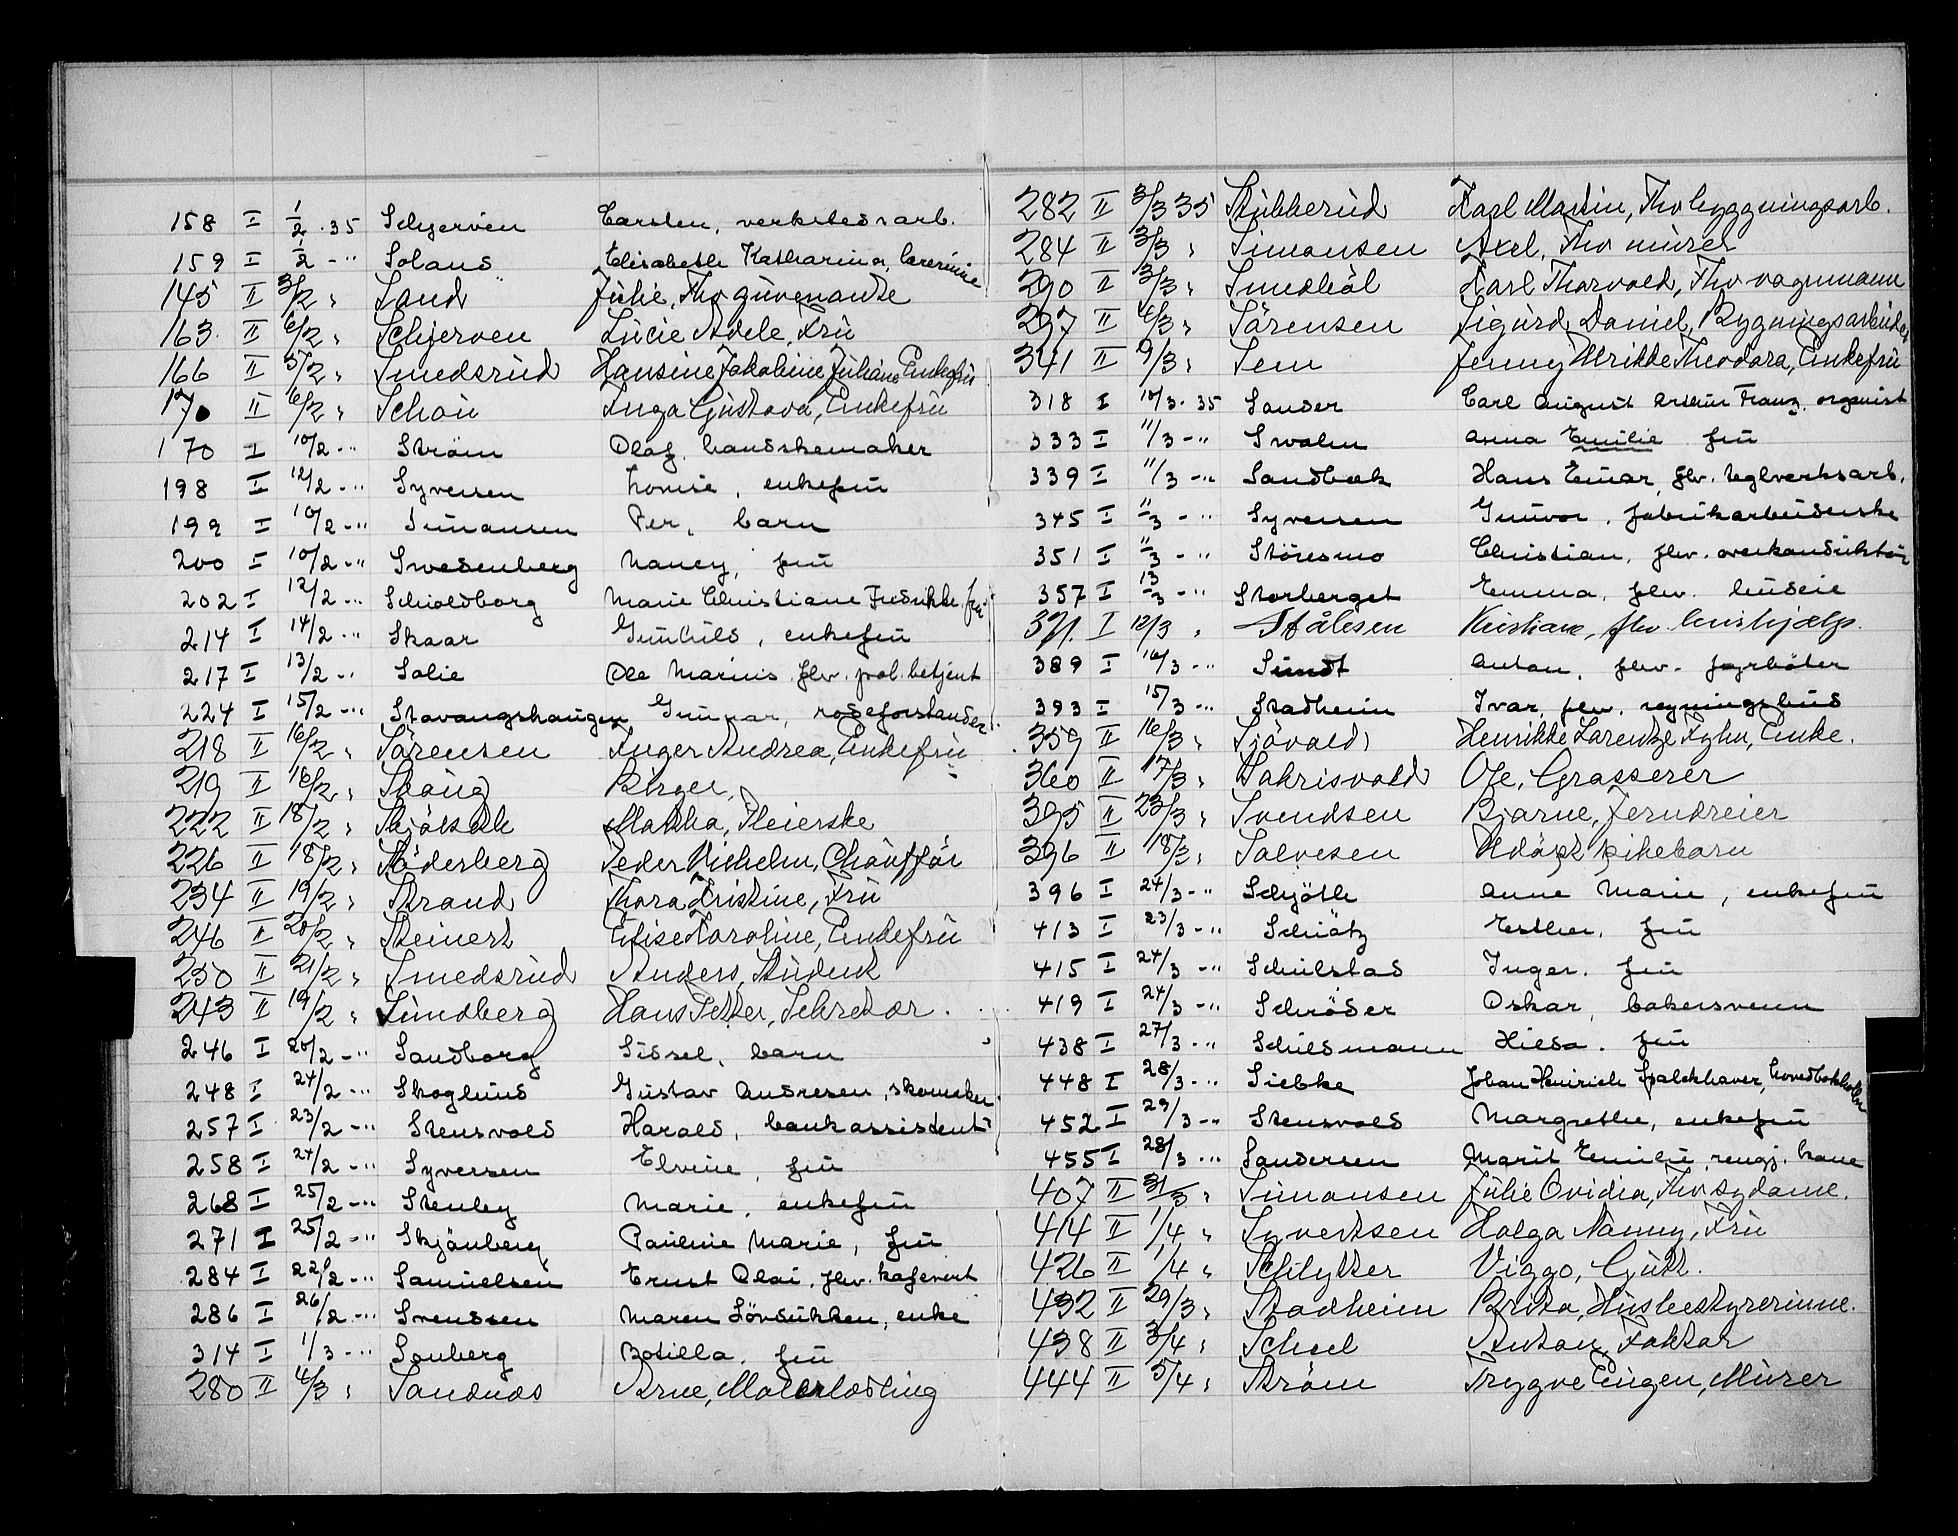 158 I 1/2 . 35 Schjerven Carsten, verkstedsarb.
159 I 1/2 - " Soland Elisabeth Katharina, lærerinne
145 II 3/2 " Sand Julie, Fhv guvernante
163 II 6/2 " Schjerven Lucie Adele, Fru
166 II 5/2 " Smedsrud Hansine Jakobine Juliane Enkefru
170 II 6/2 " Schou Inga Gustava, Enkefru
170 I 10/2 - " Strøm Olaf, handskemaker
198 I 12/2 - " Syversen Lovise, enkefru
199 I 10/2 - " Simonsen Per, barn
200 I 10/2 - " Swedenberg Nancy, fru
202 I 12/2 - " Schioldborg Marie Christiane Fredrikke, fru
214 I 14/2 - " Skaar Gunhild, enkefru
217 I 13/2 - " Solie Ole Marius, fhv. pol. betjent
224 I 15/2 - " Stavangshaugen Gunnar, rodeforstander
218 II 16/2 " Sörensen Inger Andrea, Enkefru
219 II 16/2 " Skaug Birger,
222 II 18/2 " Martha, Meierske
226 II 18/2 " Söderberg Peder Vilhelm, Chaufför
234 II 19/2 " Strand Thora Kristine, Fru
246 II 20/2 " Steinert Elise Karoline, Enkefru
250 II 21/2 " Smedsrud Anders, Student
243 II 19/2 " Sundberg Hans Petter, Sekretær.
246 I 20/2 - " Sandborg Sissel, barn
248 I 24/2 - " Skoglund Gustav Andresen, skomaker
257 I 23/2 - " Stensvold Harald, bankassistent
258 I 24/2 - " Syversen Elvine, fru
268 I 25/2 - " Stenby Marie, enkefru
271 I 25/2 - " Skjönberg Pauline Marie, fru
284 I 22/2 - " Samuelsen Ernst Olai, fhv. kafevert
286 I 26/2 - " Svendsen Maren Lövdukken, enke
314 I 1/3 - " Souberg Botilla, fru
280 II 4/3 " Sandnæs Arne, Malerlærling
282 II 3/3 35 Stubberud Karl Martin, Fhv bygggningsarb.
284 II 3/3 " Simonsen Axel, Fhv murer
290 II 3/3 " Smedhöl Karl Thorvald, Fhv vognmann
297 II 4/3 " Sörensen Sigurd Daniel, Bygningsarbeider
341 II 9/3 " Sem Jenny Ulrikke Theodora, Enkefru
318 I 10/3 . 35 Sander Carl August Arthur Franz, organist
333 I 11/3 - " Swalm Anna Emilie fru
339 I 11/3 - " Sandbæk Hans Einar, fhv. teglverksarb.
345 I 11/3 - " Syversen Gunvor, fabrikarbeiderske
351 I 11/3 - " Störesmo Christian, fhv. overkonduktör
357 I 13/3 - " Storberget Emma, fhv. huseie
371 I 12/3 " Stålesen Kristiane, fhv. hushjælp.
389 I 16/3 - " Sundt Anton, fhv. fyrböter
393 I 15/3 - " Stadheim Ivar, fhv. regningsbud
359 II 16/3 " Sjövold Henrikke Larentze Fyhn, Enke.
360 II 17/3 " Sakrisvold Ole, Grosserer
395 II 23/3 " Svendsen Bjarne, Jerndreier
396 II 18/3 " Salvesen Udöpt pikebarn
396 I 24/3 - " Schjöth Anne Marie, enkefru
413 I 23/3 - " Schiötz Esther, fru
415 I 24/3 - " Schulstad Inger, fru
419 I 24/3 - " Schröder Oskar, bakersvenn
438 I 27/3 - " Schildmann Hilda, fru
448 I 28/3 - " Siebke Johan Heinrich Spalckhaver, hovedbokholder
452 I 29/3 - " Stensvold Margrethe, enkefru
455 I 28/3 - " Sandersen Marit Emilie, rengj. kone
407 II 31/3 " Simonsen Julie Ovidia, Fhv sydame.
414 II 1/4 " Syvertsen Helga Nanny, Fru
426 II 1/4 " Schlytter Viggo, Gutt.
432 II 29/3 " Stadheim Brita, Husbestyrerinne.
438 II 3/4 " Scheel Anton, Faktor
444 II 5/4 " Strøm Trygve Eugen, Murer